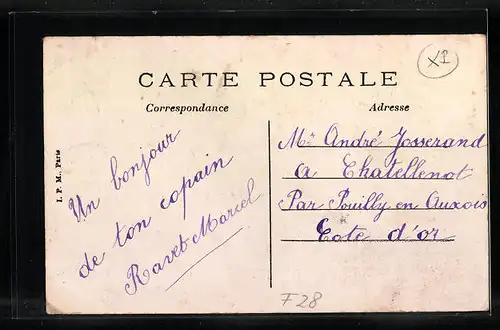 CARTE POSTALE
Correspondance
Adresse
I. P. M., Paris
Un bonjour
de ton copain
Ravet Marcel
Mr André Josserand
a Chatellenot
Par Pouilly en Auxois
Cote d'or
F28
X1